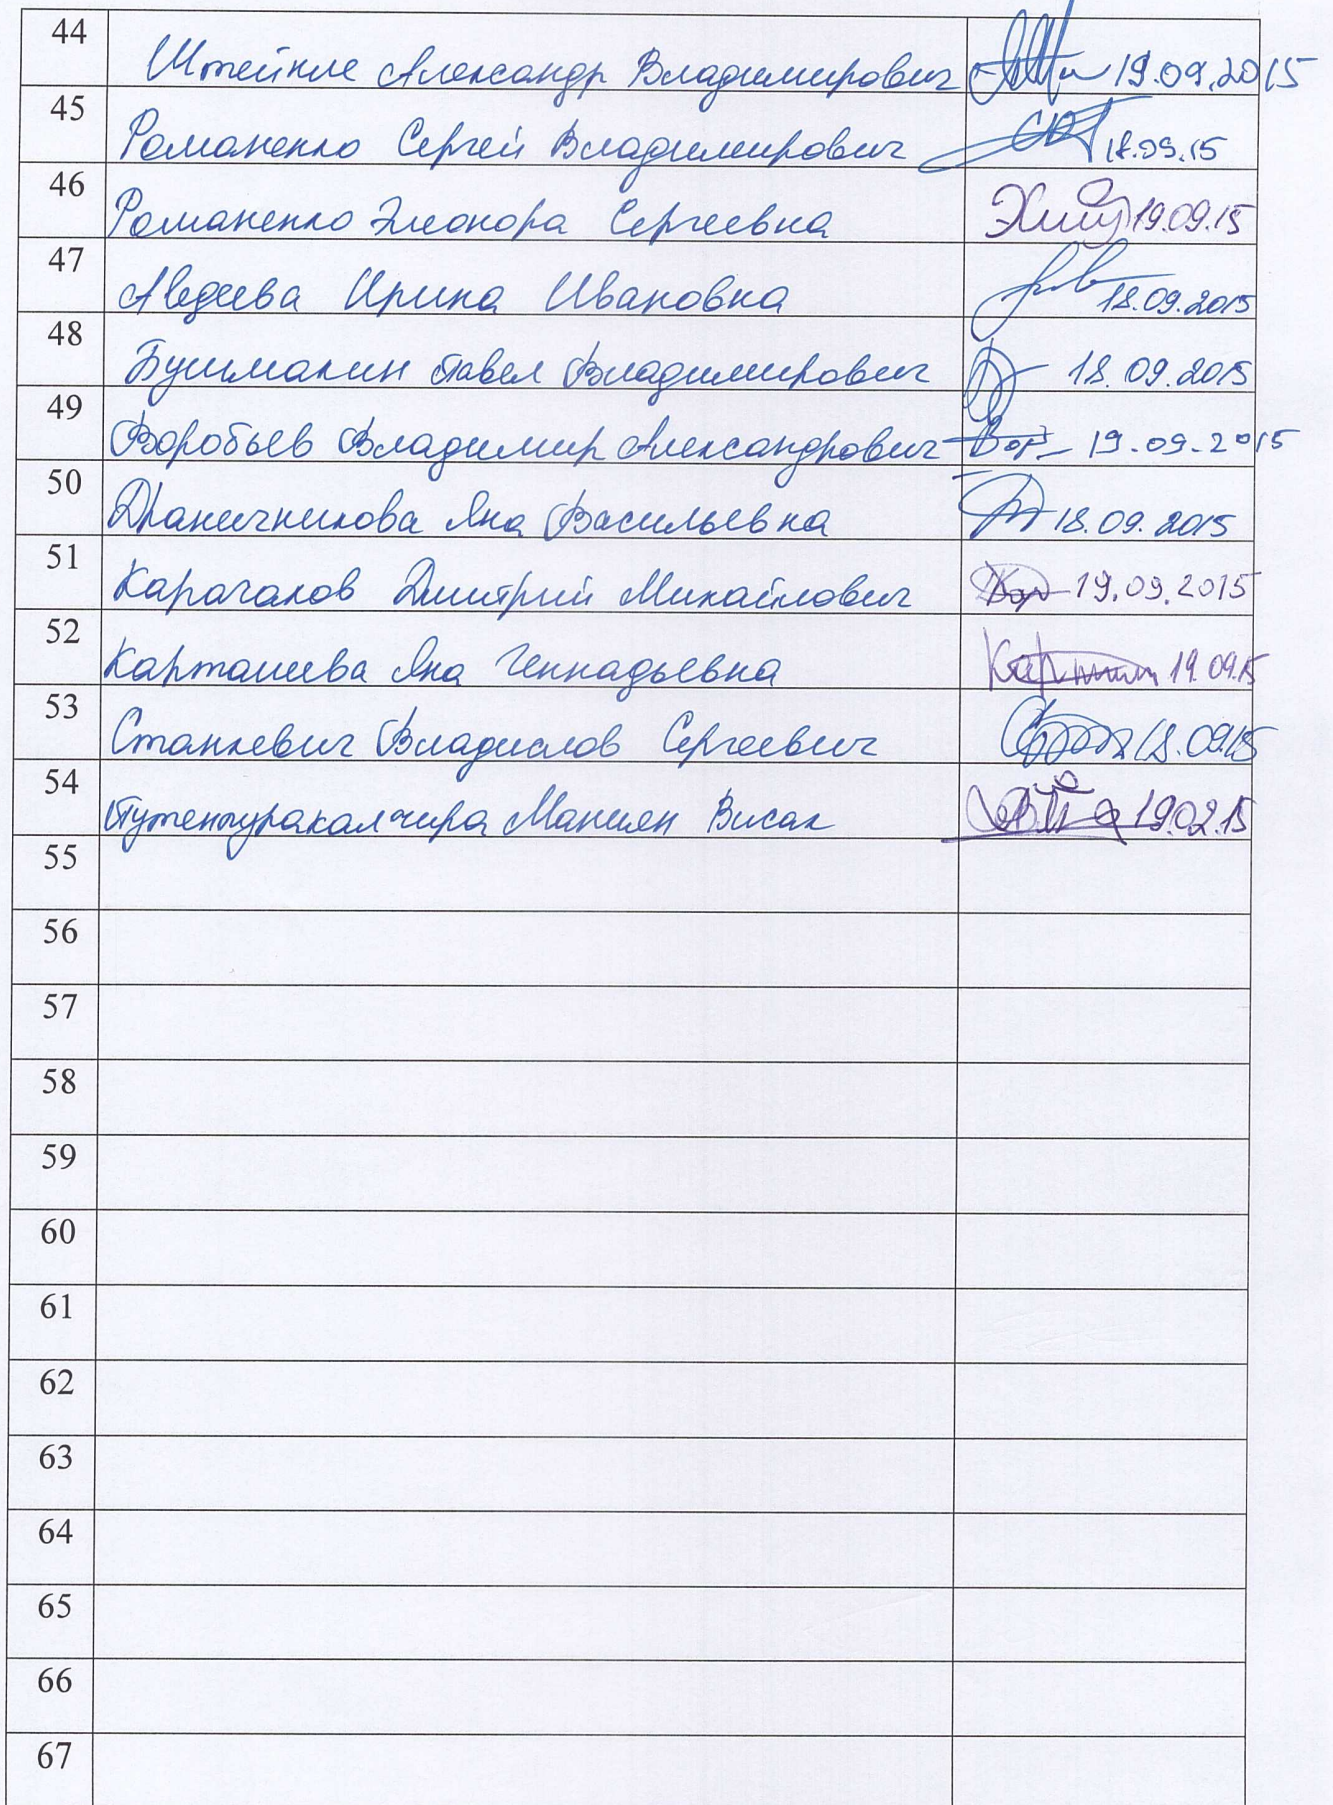 44 Штейнле Александр Владимирович 19.09.2015
45 Романенко Сергей Владимирович 18.09.15
46 Романенко Элеонора Сергеевна 19.09.15
47 Авдеева Ирина Ивановна 18.09.2015
48 Бушмакин Павел Владимирович 18.09.2015
49 Воробьев Владимир Александрович 19.09.2015
50 Драничникова Яна Васильевна 18.09.2015
51 Карачаков Дмитрий Михайлович 19.09.2015
52 Карташева Яна Геннадьевна 19.09.15
53 Станкевич Владислав Сергеевич 18.09.15
54 Путентуракалчира Маниян Висак 19.02.15
55
56
57
58
59
60
61
62
63
64
65
66
67